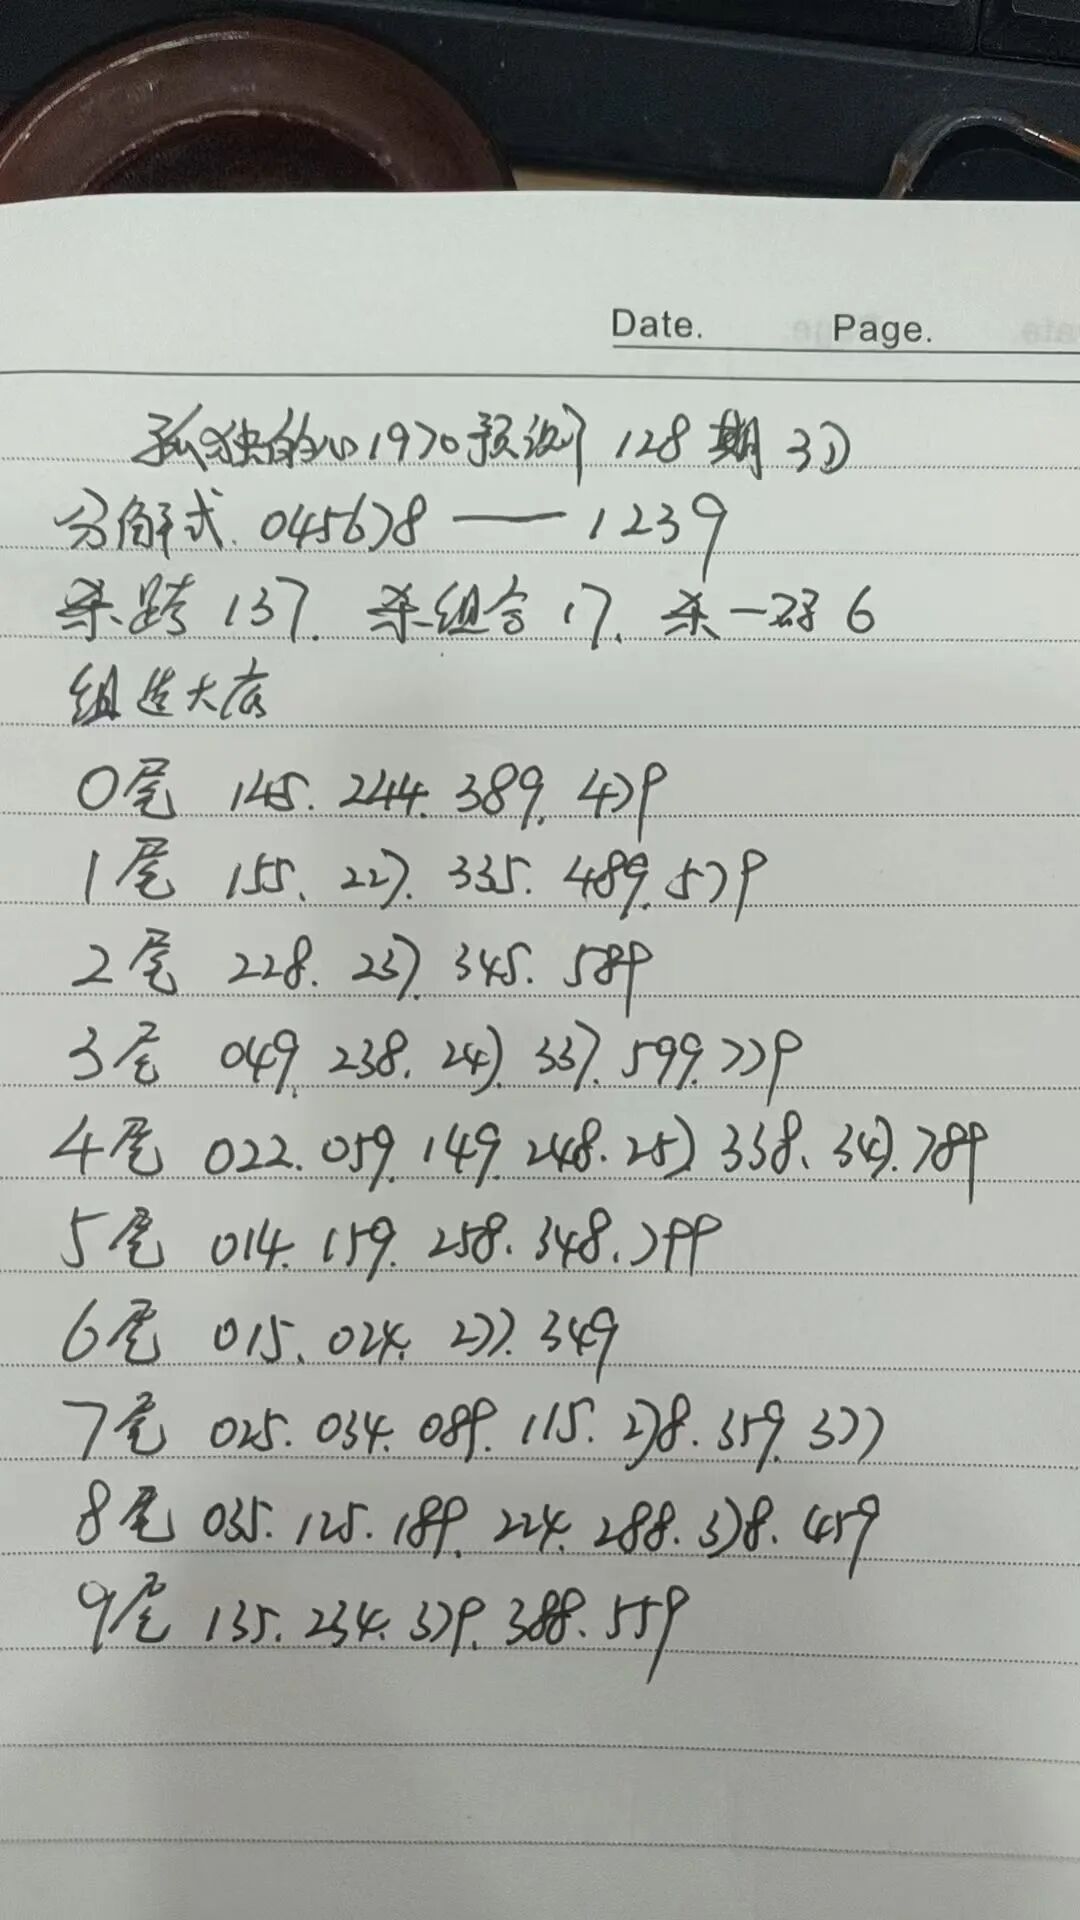 Date. Page.
孤独的心1970预测 128期 3D
分解式. 045678 —— 1239
杀跨 137. 杀组合 17. 杀一码 6
组选大底
0尾 145. 244. 389. 479
1尾 155. 227. 335. 489. 579
2尾 228. 237. 345. 589
3尾 049. 238. 247 337. 599. 779
4尾 022. 059. 149. 248. 257 338. 347. 789
5尾 014. 159. 258. 348. 799
6尾 015. 024. 277. 349
7尾 025. 034. 089. 115. 278. 359. 377
8尾 035. 125. 189. 224. 288. 378. 459
9尾 135. 234. 379. 388. 559